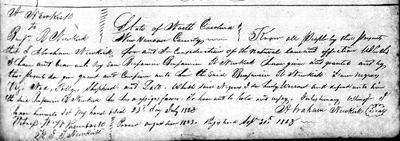 A Newkirk
to
Benj. R. Newkirk
State of North Carolina
New Hanover County
Know all People by these Presents
that I Abraham Newkirk for and in Consideration of the natural love and affection Which
I have and bear unto my son Benjamin R Newkirk have given and granted and by
these presents do give grant and Confirm unto him the said Benjamin R Newkirk Four negroes
Viz. Ned, Sally, Shepherd and Patt. Which said Negroes I do hereby Warrant and defend unto
the said Benjamin R Newkirk his heirs assigns forever. To have and to hold and enjoy. In testimony Whereof I
have hereunto set my hand &
 Seal 23rd day July 1823
Abraham Newkirk (Seal)
Proved August Term 1823. Registered Sept 21st 1823
Newkirk